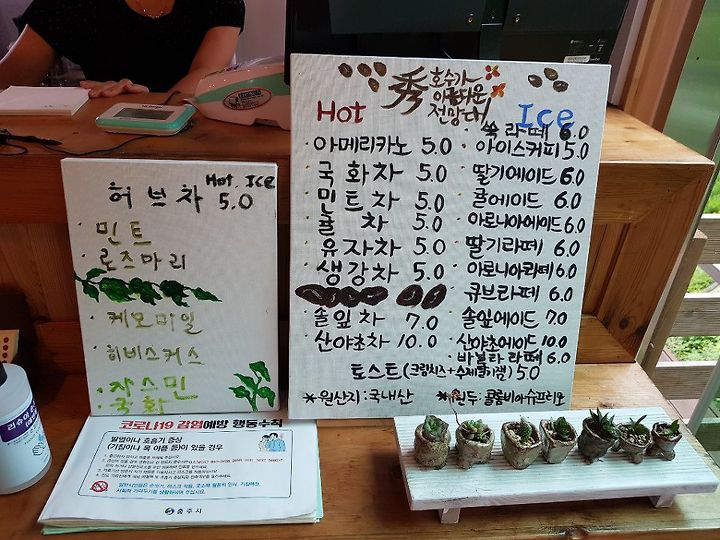 허브차
Hot, Ice
5.0
민트
로즈마리
케모마일
히비스커스
자스민
국화
秀 호수가
아름다운
전망대
Hot
아메리카노 5.0
국화차 5.0
민트차 5.0
귤차 5.0
유자차 5.0
생강차 5.0
솔잎차 7.0
산야초차 10.0
Ice
쑥라떼 6.0
아이스커피 5.0
딸기에이드 6.0
귤에이드 6.0
아로니아에이드 6.0
딸기라떼 6.0
아로니아라떼 6.0
큐브라떼 6.0
솔잎에이드 7.0
산야초에이드 10.0
바닐라라떼 6.0
토스트(크림치즈+수제딸기쨈) 5.0
*원산지:국내산
*원두:콜롬비아슈프리모
코로나19 감염예방 행동수칙
발열이나 호흡기 증상
(기침이나 목 아픔 등)이 있을 경우
충주시